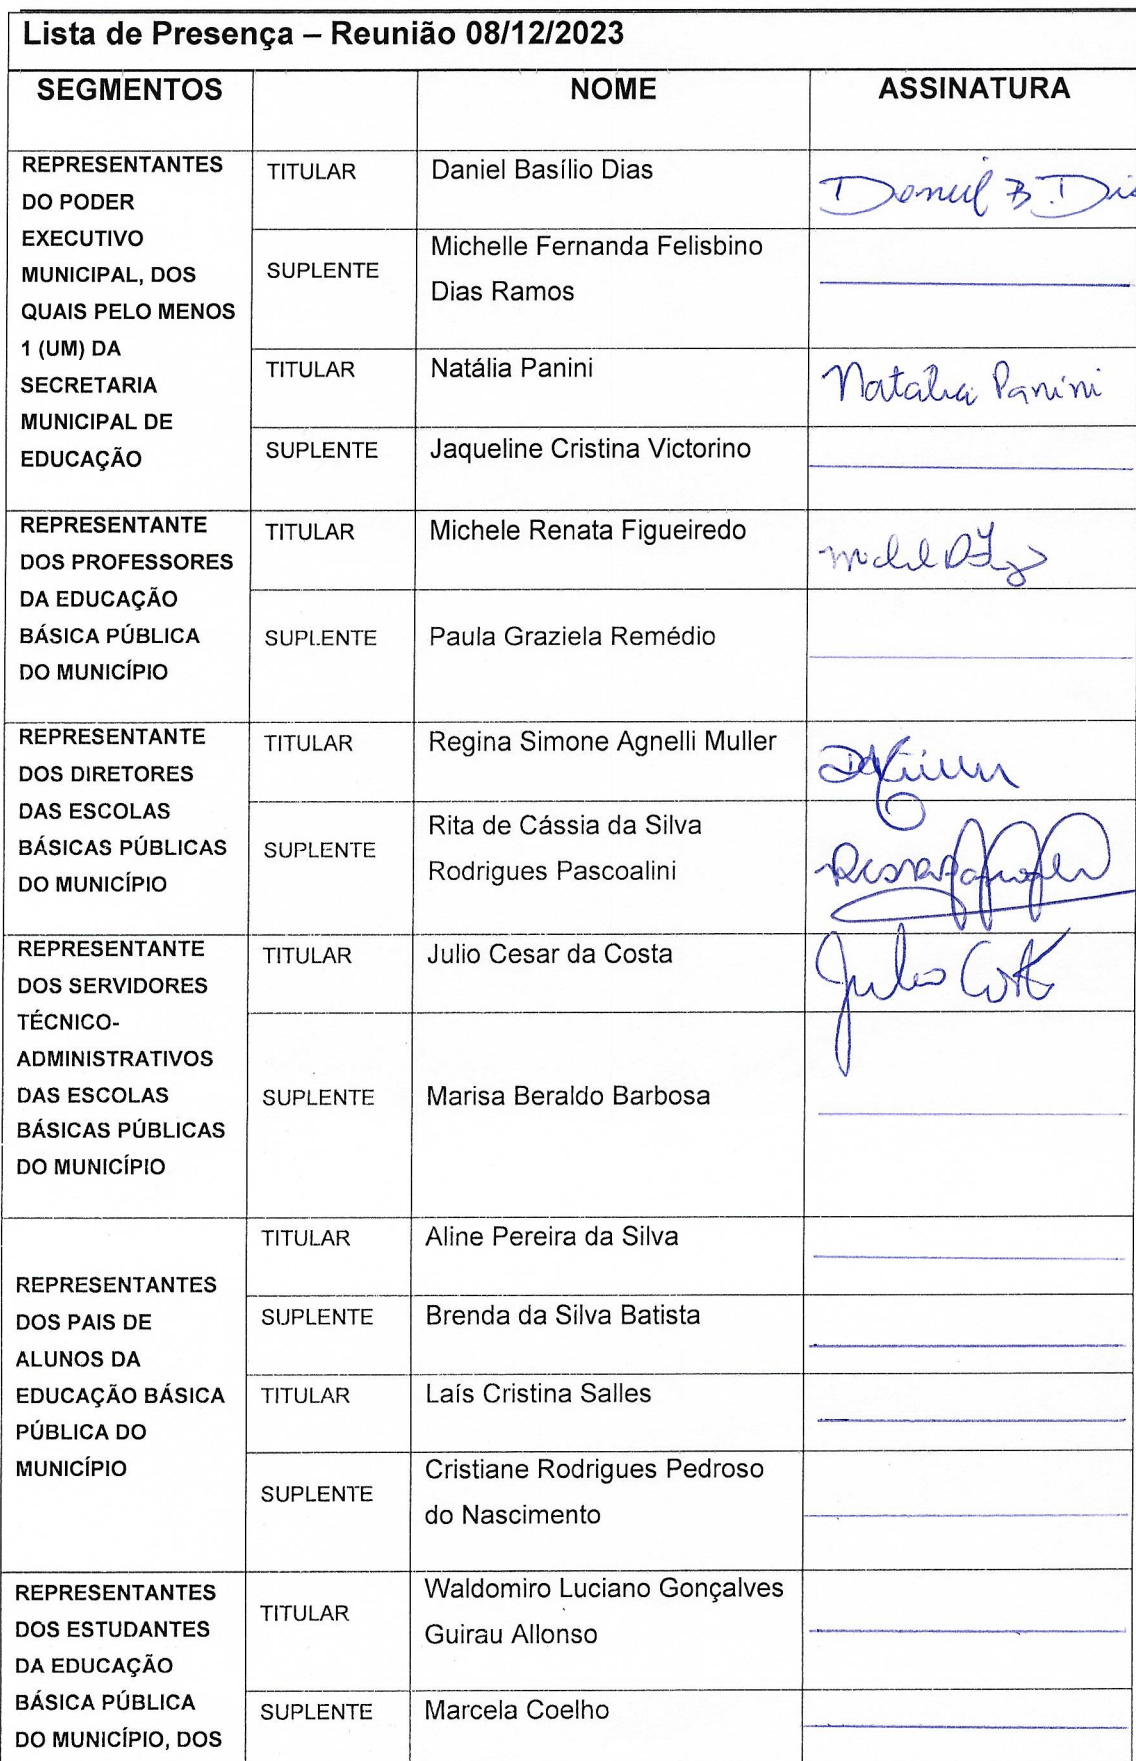 Lista de Presença – Reunião 08/12/2023
SEGMENTOS NOME ASSINATURA
REPRESENTANTES
DO PODER
EXECUTIVO
MUNICIPAL, DOS
QUAIS PELO MENOS
1 (UM) DA
SECRETARIA
MUNICIPAL DE
EDUCAÇÃO
TITULAR Daniel Basílio Dias Daniel B. Dias
SUPLENTE Michelle Fernanda Felisbino
Dias Ramos
TITULAR Natália Panini Natália Panini
SUPLENTE Jaqueline Cristina Victorino
REPRESENTANTE
DOS PROFESSORES
DA EDUCAÇÃO
BÁSICA PÚBLICA
DO MUNICÍPIO
TITULAR Michele Renata Figueiredo
SUPLENTE Paula Graziela Remédio
REPRESENTANTE
DOS DIRETORES
DAS ESCOLAS
BÁSICAS PÚBLICAS
DO MUNICÍPIO
TITULAR Regina Simone Agnelli Muller
SUPLENTE Rita de Cássia da Silva
Rodrigues Pascoalini
REPRESENTANTE
DOS SERVIDORES
TÉCNICO-
ADMINISTRATIVOS
DAS ESCOLAS
BÁSICAS PÚBLICAS
DO MUNICÍPIO
TITULAR Julio Cesar da Costa Julio Costa
SUPLENTE Marisa Beraldo Barbosa
REPRESENTANTES
DOS PAIS DE
ALUNOS DA
EDUCAÇÃO BÁSICA
PÚBLICA DO
MUNICÍPIO
TITULAR Aline Pereira da Silva
SUPLENTE Brenda da Silva Batista
TITULAR Laís Cristina Salles
SUPLENTE Cristiane Rodrigues Pedroso
do Nascimento
REPRESENTANTES
DOS ESTUDANTES
DA EDUCAÇÃO
BÁSICA PÚBLICA
DO MUNICÍPIO, DOS
TITULAR Waldomiro Luciano Gonçalves
Guirau Allonso
SUPLENTE Marcela Coelho